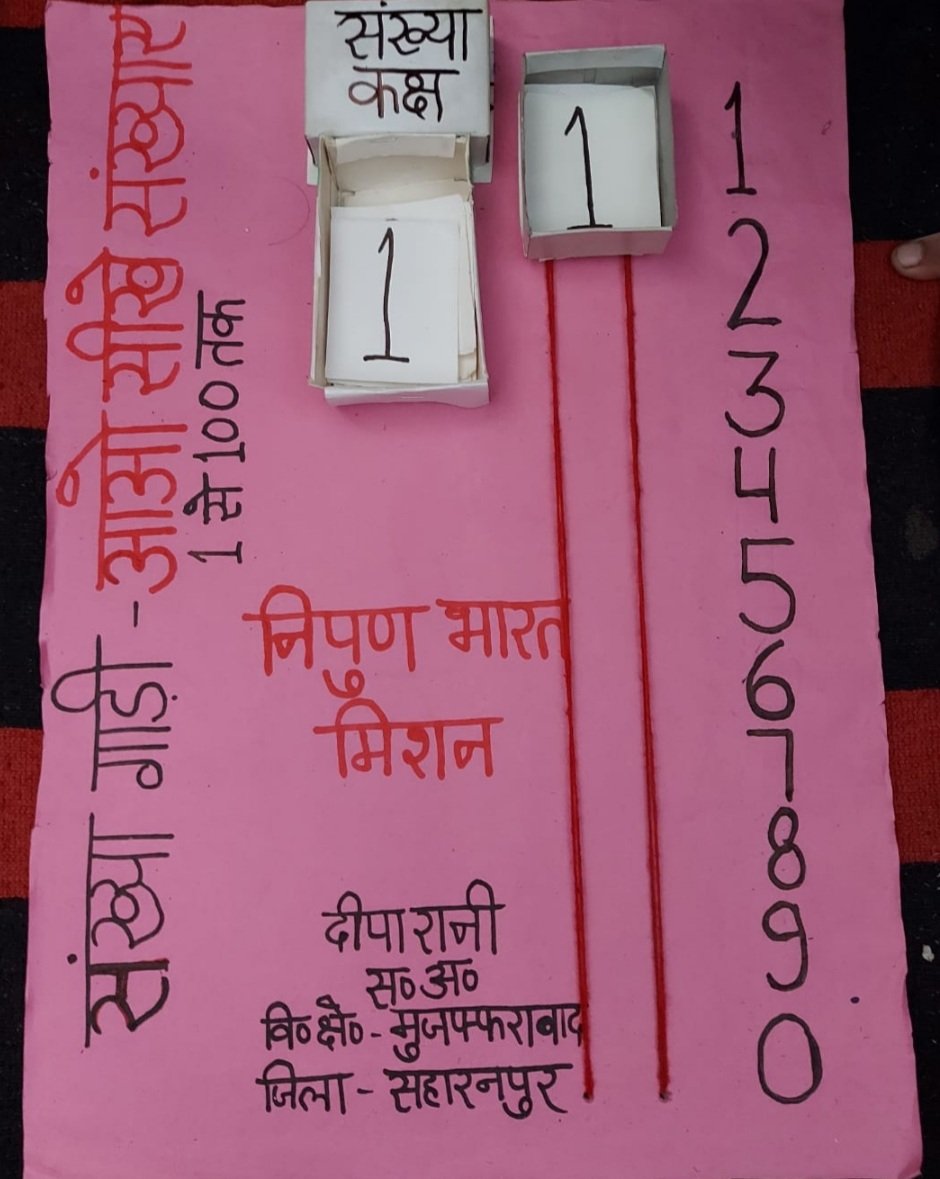 संख्या गाड़ी - आओ सीखे संख्याए
1 से 100 तक
संख्या
कक्ष
1
1
निपुण भारत
मिशन
दीपा रानी
स० अ०
वि० क्षै० - मुजफ्फराबाद
जिला - सहारनपुर
1
2
3
4
5
6
7
8
9
0